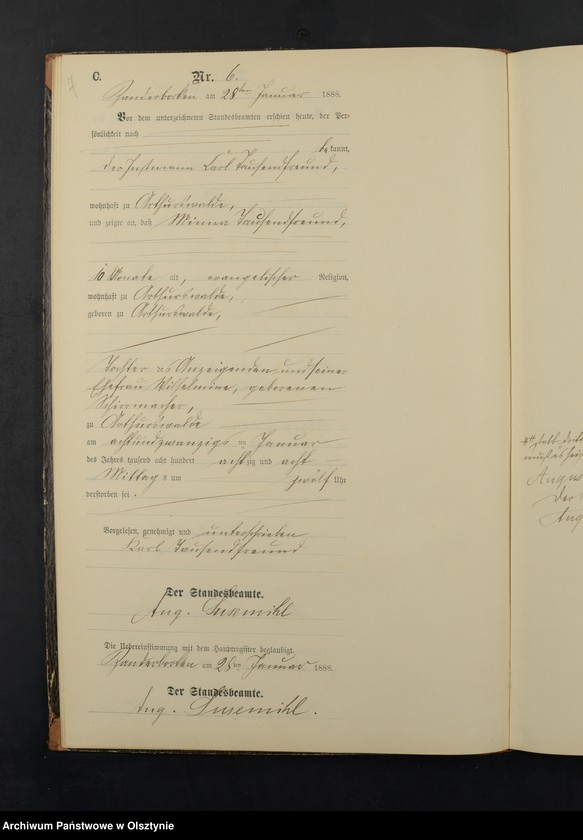 C.
Nr. 6.
am 28ten Januar 1888.
Vor dem unterzeichneten Standesbeamten erschien heute, der Per-
sönlichkeit nach
be kannt,
der Instmann Karl Tausendfreund,
wohnhaft zu Arthurswalde,
und zeigte an, daß Minna Tausendfreund,
10 Monate alt, evangelischer Religion,
wohnhaft zu Arthurswalde,
geboren zu Arthurswalde,
Tochter des Anzeigenden und seiner
Ehefrau Wilhelmine, geborenen
Schirrmacher,
zu Arthurswalde
am achtundzwanzigsten Januar
des Jahres tausend acht hundert achtzig und acht
Mittags um zwölf Uhr
verstorben sei.
Vorgelesen, genehmigt und unterschrieben
Karl Tausendfreund
Der Standesbeamte.
Aug. Susemihl
Die Uebereinstimmung mit dem Hauptregister beglaubigt.
am 28ten Januar 1888.
Der Standesbeamte.
Aug. Susemihl.
Archiwum Państwowe w Olsztynie